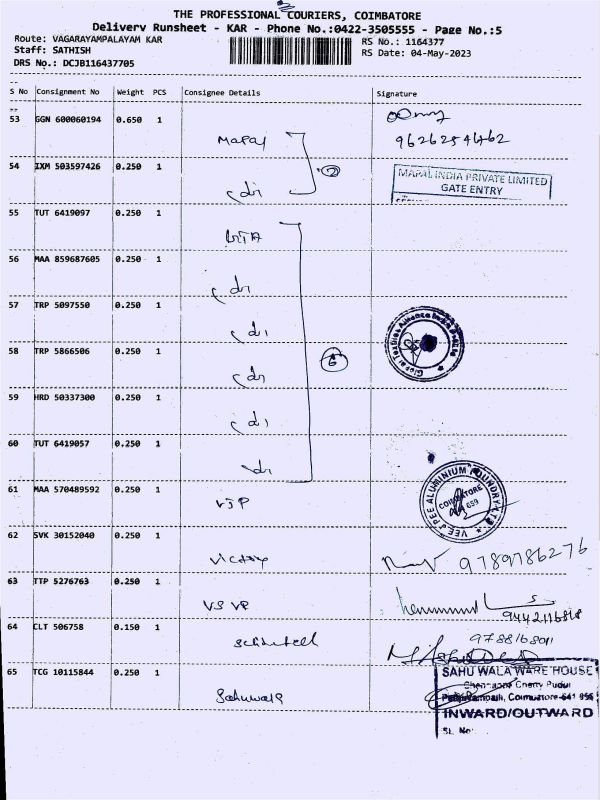 THE PROFESSIONAL COURIERS, COIMBATORE
Delivery Runsheet - KAR - Phone No.:0422-3505555 - Page No.:5
Route: VAGARAYAMPALAYAM KAR
RS No.: 1164377
Staff: SATHISH
RS Date: 04-May-2023
DRS No.: DCJB116437705
S No Consignment No Weight PCS Consignee Details Signature
53 GGN 600060194 0.650 1
Mapal
9626254462
54 IXM 503597426 0.250 1
2
MAPAL INDIA PRIVATE LIMITED
GATE ENTRY
55 TUT 6419097 0.250 1
56 MAA 859687605 0.250 1
57 TRP 5097550 0.250 1
58 TRP 5866506 0.250 1
6
59 HRD 50337300 0.250 1
60 TUT 6419057 0.250 1
61 MAA 570489592 0.250 1
VJP
VEE JPEE ALUMINIUM FOUNDRY
COIMBATORE
659
62 SVK 30152040 0.250 1
9789786276
63 TTP 5276763 0.250 1
VS VP
9442116818
64 CLT 506758 0.150 1
65 TCG 10115844 0.250 1
Sahuwala
SAHU WALA WARE HOUSE
INWARD/OUTWARD
SL No